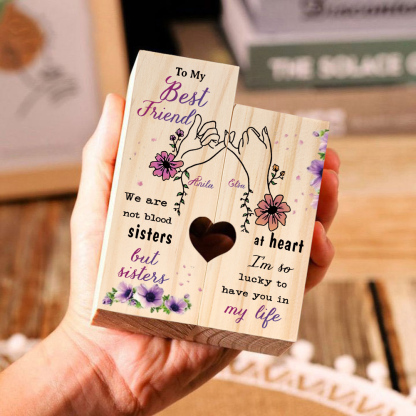 To My
Best
Friend
Anita Elsa
We are
not blood
sisters
but
sisters
at heart
I'm so
lucky to
have you in
my life
THE SOLACE